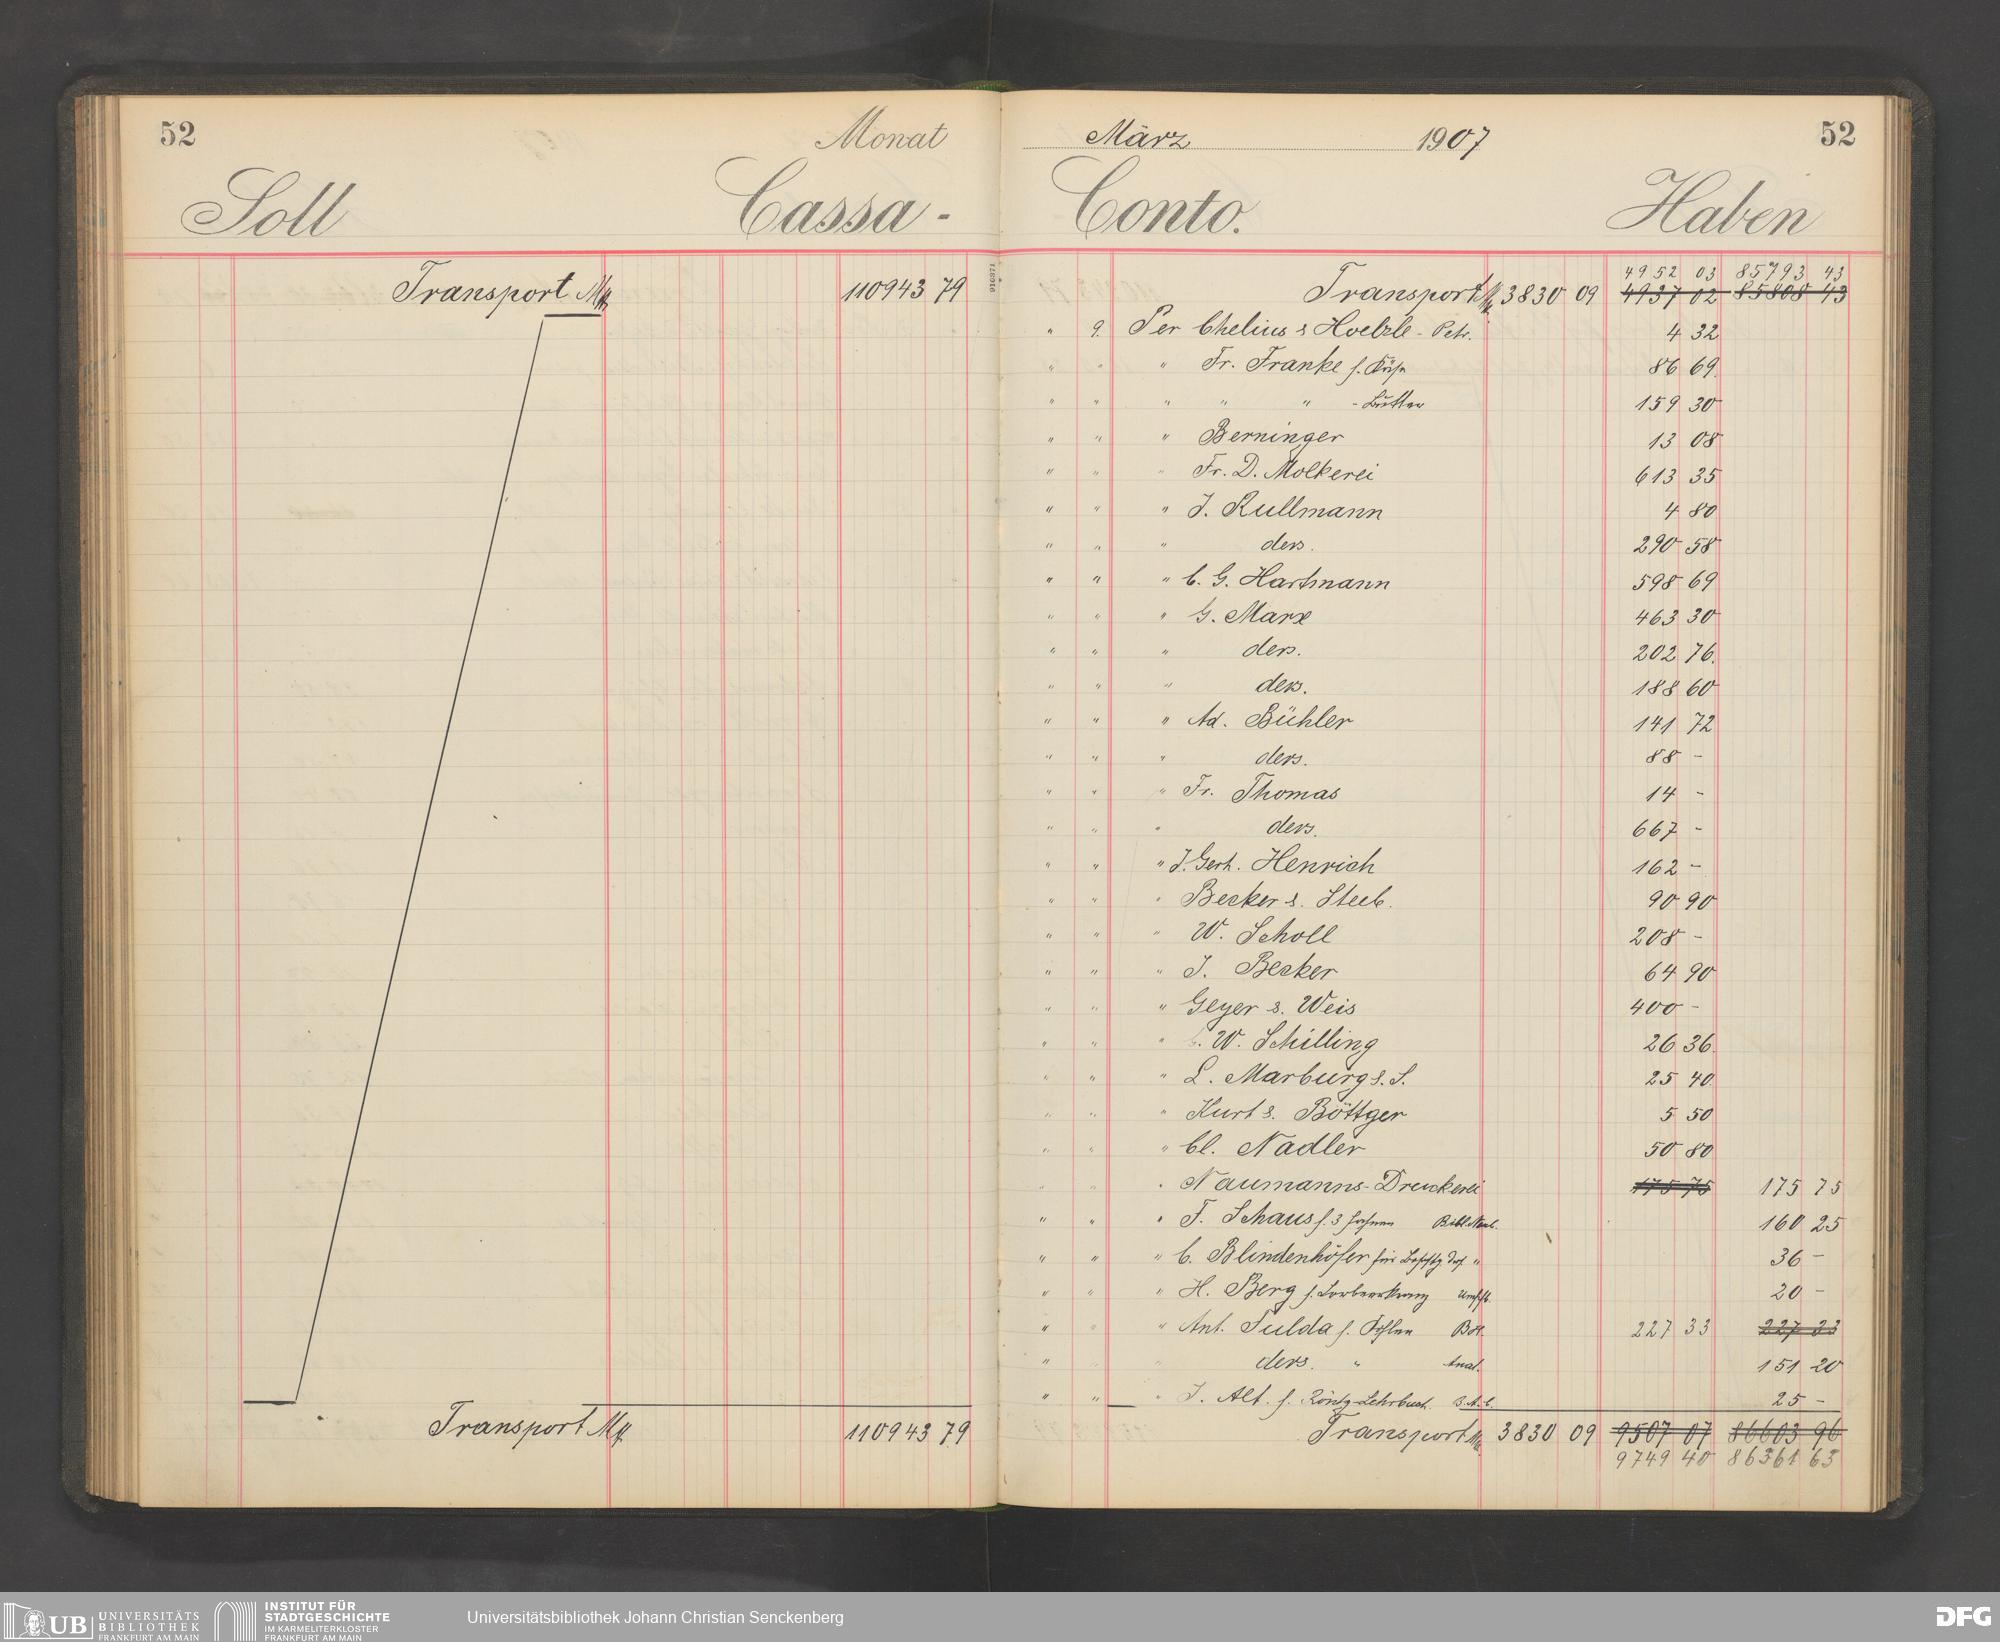 52
Monat
Soll
Cassa-
Transport M
110943 79
Transport M
110943 79
März 1907
52
Conto.
Haben
4952 03 85793 43
Transport M 3830 09 4937 02 85808 43
" 9. Per Chelius & Hoelzle - Petr. 4 32
" " " Fr. Franke f. Käse 86 69
" " " " " - Butter 159 30
" " " Berninger 13 08
" " " Fr. D. Molkerei 613 35
" " " J. Kullmann 4 80
" " " ders. 290 58
" " " C. G. Hartmann 598 69
" " " G. Marx 463 30
" " " ders. 202 76.
" " " ders. 188 60
" " " Ad. Bühler 141 72
" " " ders. 88 -
" " " Fr. Thomas 14 -
" " " ders. 667 -
" " " J. Gerh. Henrich 162 -
" " " Becker & Steeb. 90 90
" " " W. Scholl 208 -
" " " J. Becker 64 90
" " " Geyer & Weis 400 -
" " " W. Schilling 26 36.
" " " L. Marburg & S. 25 40
" " " Kurt & Böttger 5 50
" " " Cl. Nadler 50 80
" " " Naumanns-Druckerei 175 75 175 75
" " " F. Schaus f. 3 Bibl. 160 25
" " " C. Blindenhöfer für " 36 -
" " " H. Berg f. Lorbeerkranz 20 -
" " " Ant. Fulda f. Kohlen Bot. 227 33 227 33
" " " ders. " Anat. 151 20
" " " J. Alt. f. Röntg-Lehrbuch 25 -
Transport M 3830 09 9507 07 86603 96
9749 40 86361 63
UB UNIVERSITÄTS
BIBLIOTHEK
FRANKFURT AM MAIN
INSTITUT FÜR
STADTGESCHICHTE
IM KARMELITERKLOSTER
FRANKFURT AM MAIN
Universitätsbibliothek Johann Christian Senckenberg
DFG